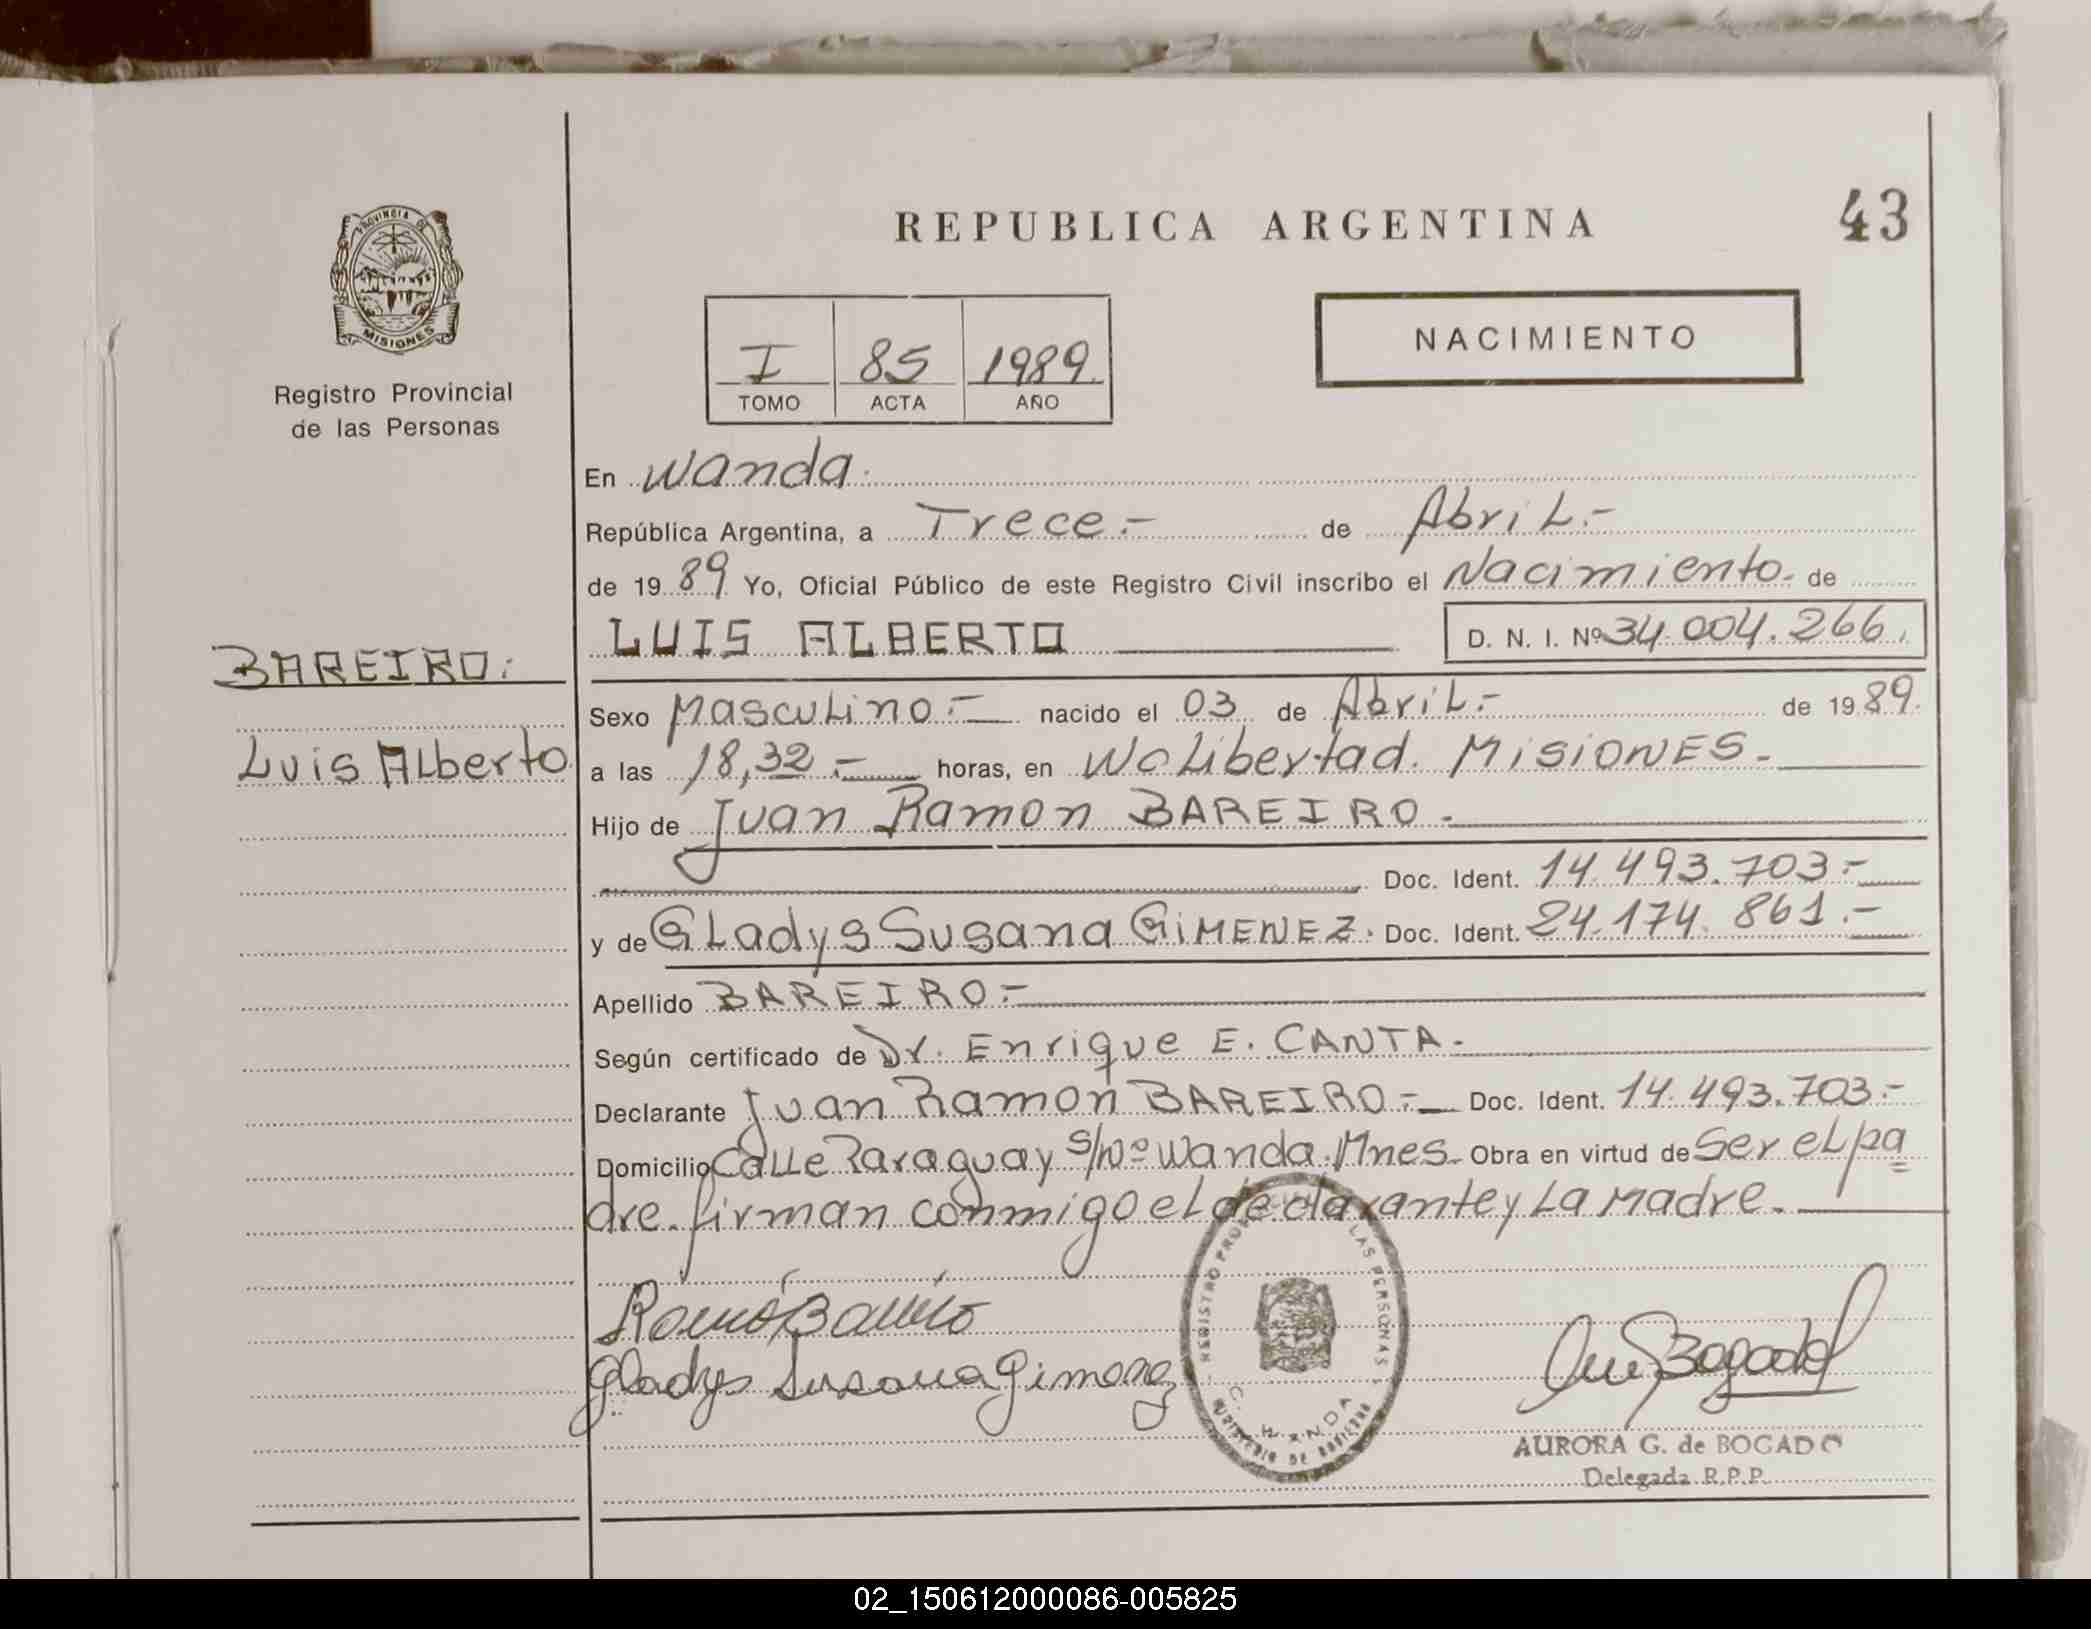 REPUBLICA ARGENTINA
43
PROVINCIA DE
MISIONES
Registro Provincial
de las Personas
NACIMIENTO
I 85 1989.
TOMO ACTA AÑO
En Wanda.
República Argentina, a Trece.- de Abril.-
de 1989 Yo, Oficial Público de este Registro Civil inscribo el Nacimiento. de
LUIS ALBERTO D. N. I. Nº 34.004.266.
BAREIRO.
Luis Alberto
Sexo Masculino.- nacido el 03 de Abril.- de 1989.
a las 18,32.- horas, en Wa Libertad. MISIONES.-
Hijo de Juan Ramon BAREIRO.
Doc. Ident. 14.493.703.-
y de Gladys Susana GIMENEZ. Doc. Ident. 24.174.861.-
Apellido BAREIRO.-
Según certificado de Dr. Enrique E. CANTA.-
Declarante Juan Ramon BAREIRO.- Doc. Ident. 14.493.703.-
Domicilio Calle Paraguay s/Nº Wanda. Mnes. Obra en virtud de Ser el pa
dre. firman conmigo el declarante y La Madre.
Gladys Susana Gimenez
REGISTRO LAS PERSONAS
WANDA
MINISTERIO DE GOBIERNO
AURORA G. de BOGADO
Delegada R.P.P.
02_150612000086-005825